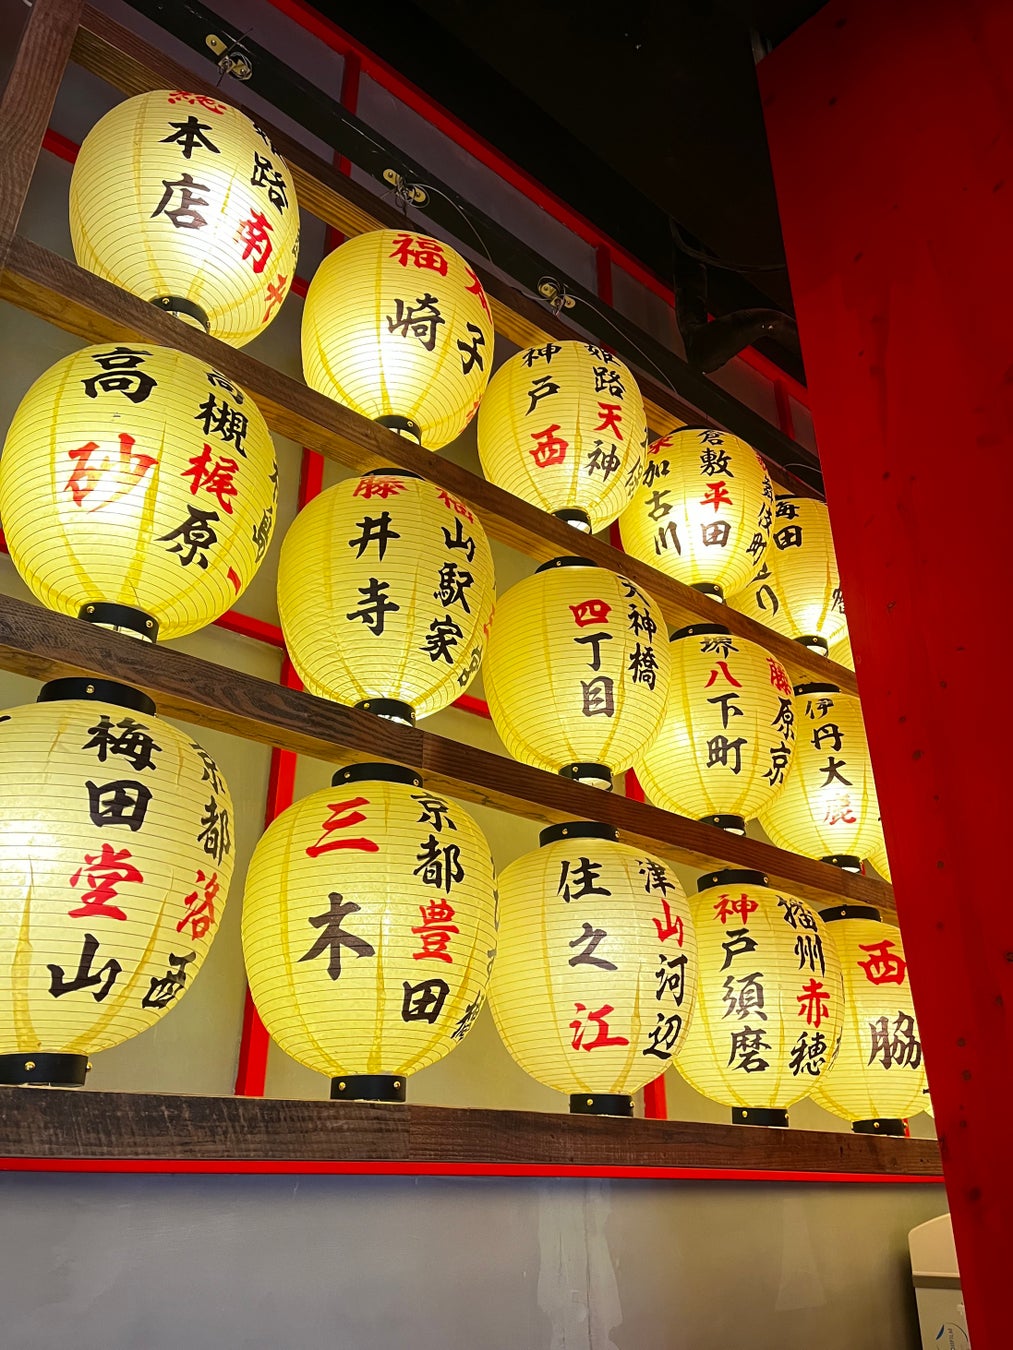 総本店
路南
福崎
神戸西
姫路天神
加古川
倉敷平田
梅田
高砂
高槻梶原
藤井寺
福山駅家
四丁目
天神橋
堺八下町
藤原京
伊丹大鹿
梅田堂山
京都洛西
三木
京都豊田
住之江
津山河辺
神戸須磨
播州赤穂
西脇